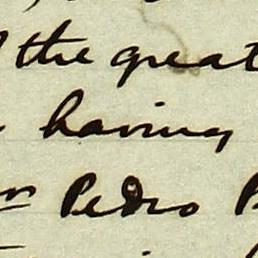 the great
having
Pedro